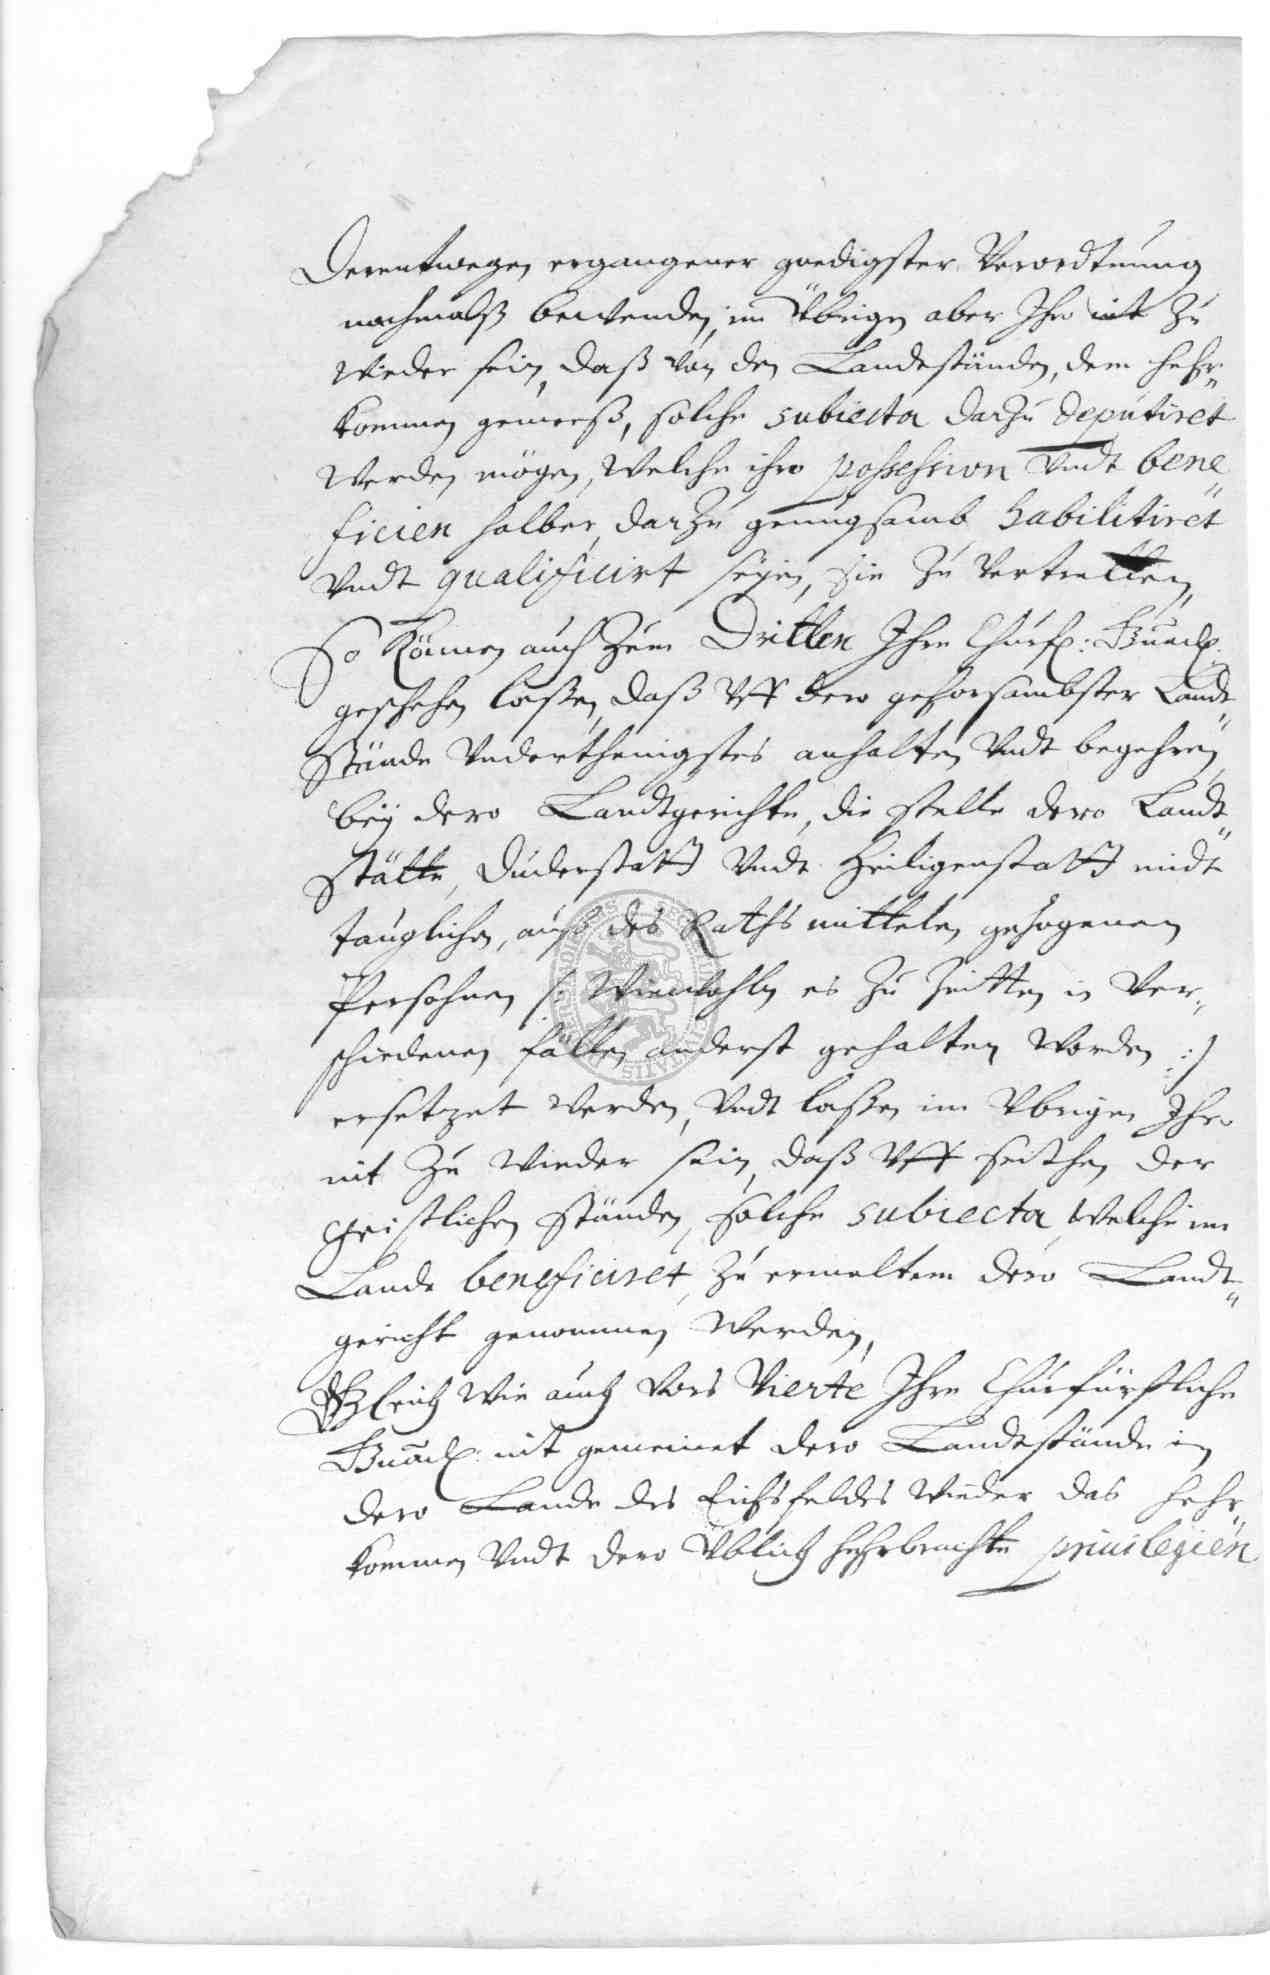 Derentwegen ergangener gnedigster Verordtnung
nochmalß bewenden, im Übrigen aber Ihro nit zu
wieder sein, daß von den Landeständen, dem hehr„
kommen gemeeß, solche subiecta darzu deputiret
werden mögen, welche ihro possession undt bene„
ficien halber, darzu genugsamb habilitiret
Undt qualificirt seyen, sie zu vertretten,
So können auch zum Dritten Ihre Churf: Gnad:
geschehen laßen, daß Uff dero gehorsambster Landt„
Stände Underthenigstes anhalten Undt begehren,
bey dero Landtgerichte, die stelle dero Landt„
Stätte, Duderstatt Undt Heiligenstatt midt
tauglichen, auß des Raths mittelen gezogenen
Persohnen /: Wiewohln es zu zeitten in Ver„
schiedenen fällen anderst gehalten worden :/
ersetzet werden, Undt laßen im Übrigen Ihro
nit zu wieder sein, daß Uff seithen der
Geistlichen ständen, solche subiecta, welche im
Lande beneficiret, zu ermeltem dero Landt„
gericht genommen werden,
Gleich wie auch Vors Vierte Ihre Churfürstliche
Gnad: nit gemeinet dero Landestände in
dero Lande des Eichsfeldes wieder das hehr„
kommen Undt dero Üblich hehrbrachte priuilegien